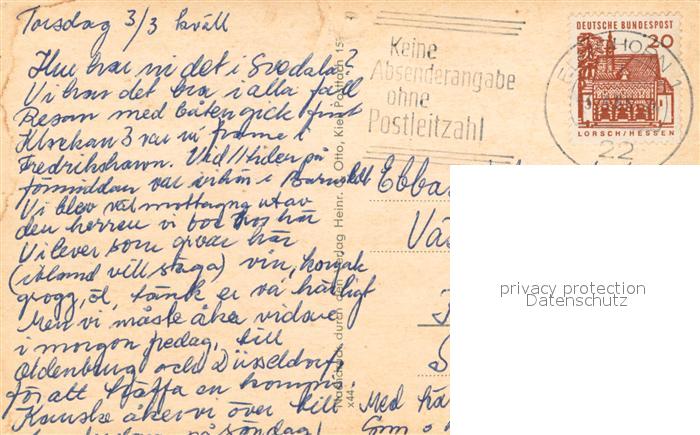 Torsdag 3/3 kväll
Hur har ni det i Svedala?
Vi har det bra i alla fall
Resan med båten gick fint
Klockan 3 var vi framme i
Fredrikshavn. Vid 11 tiden på
förmiddan var vi här i Barmstedt
Vi blev väl mottagna utav
den herren vi bor hos här
Vi lever som grvar här
(ibland vill säga) vin, konjak
grogg, öl, tänk er va härligt
Men vi måste åka vidare
i morgon fredag, till
Oldenburg och Düsseldorf,
för att träffa en kompis.
Kanske åker vi över till
på söndag!
Med
Ebba
Keine
Absenderangabe
ohne
Postleitzahl
DEUTSCHE BUNDESPOST
20
LORSCH/HESSEN
22
Otto, Kiel, Postfach 15
x44
privacy protection
Datenschutz